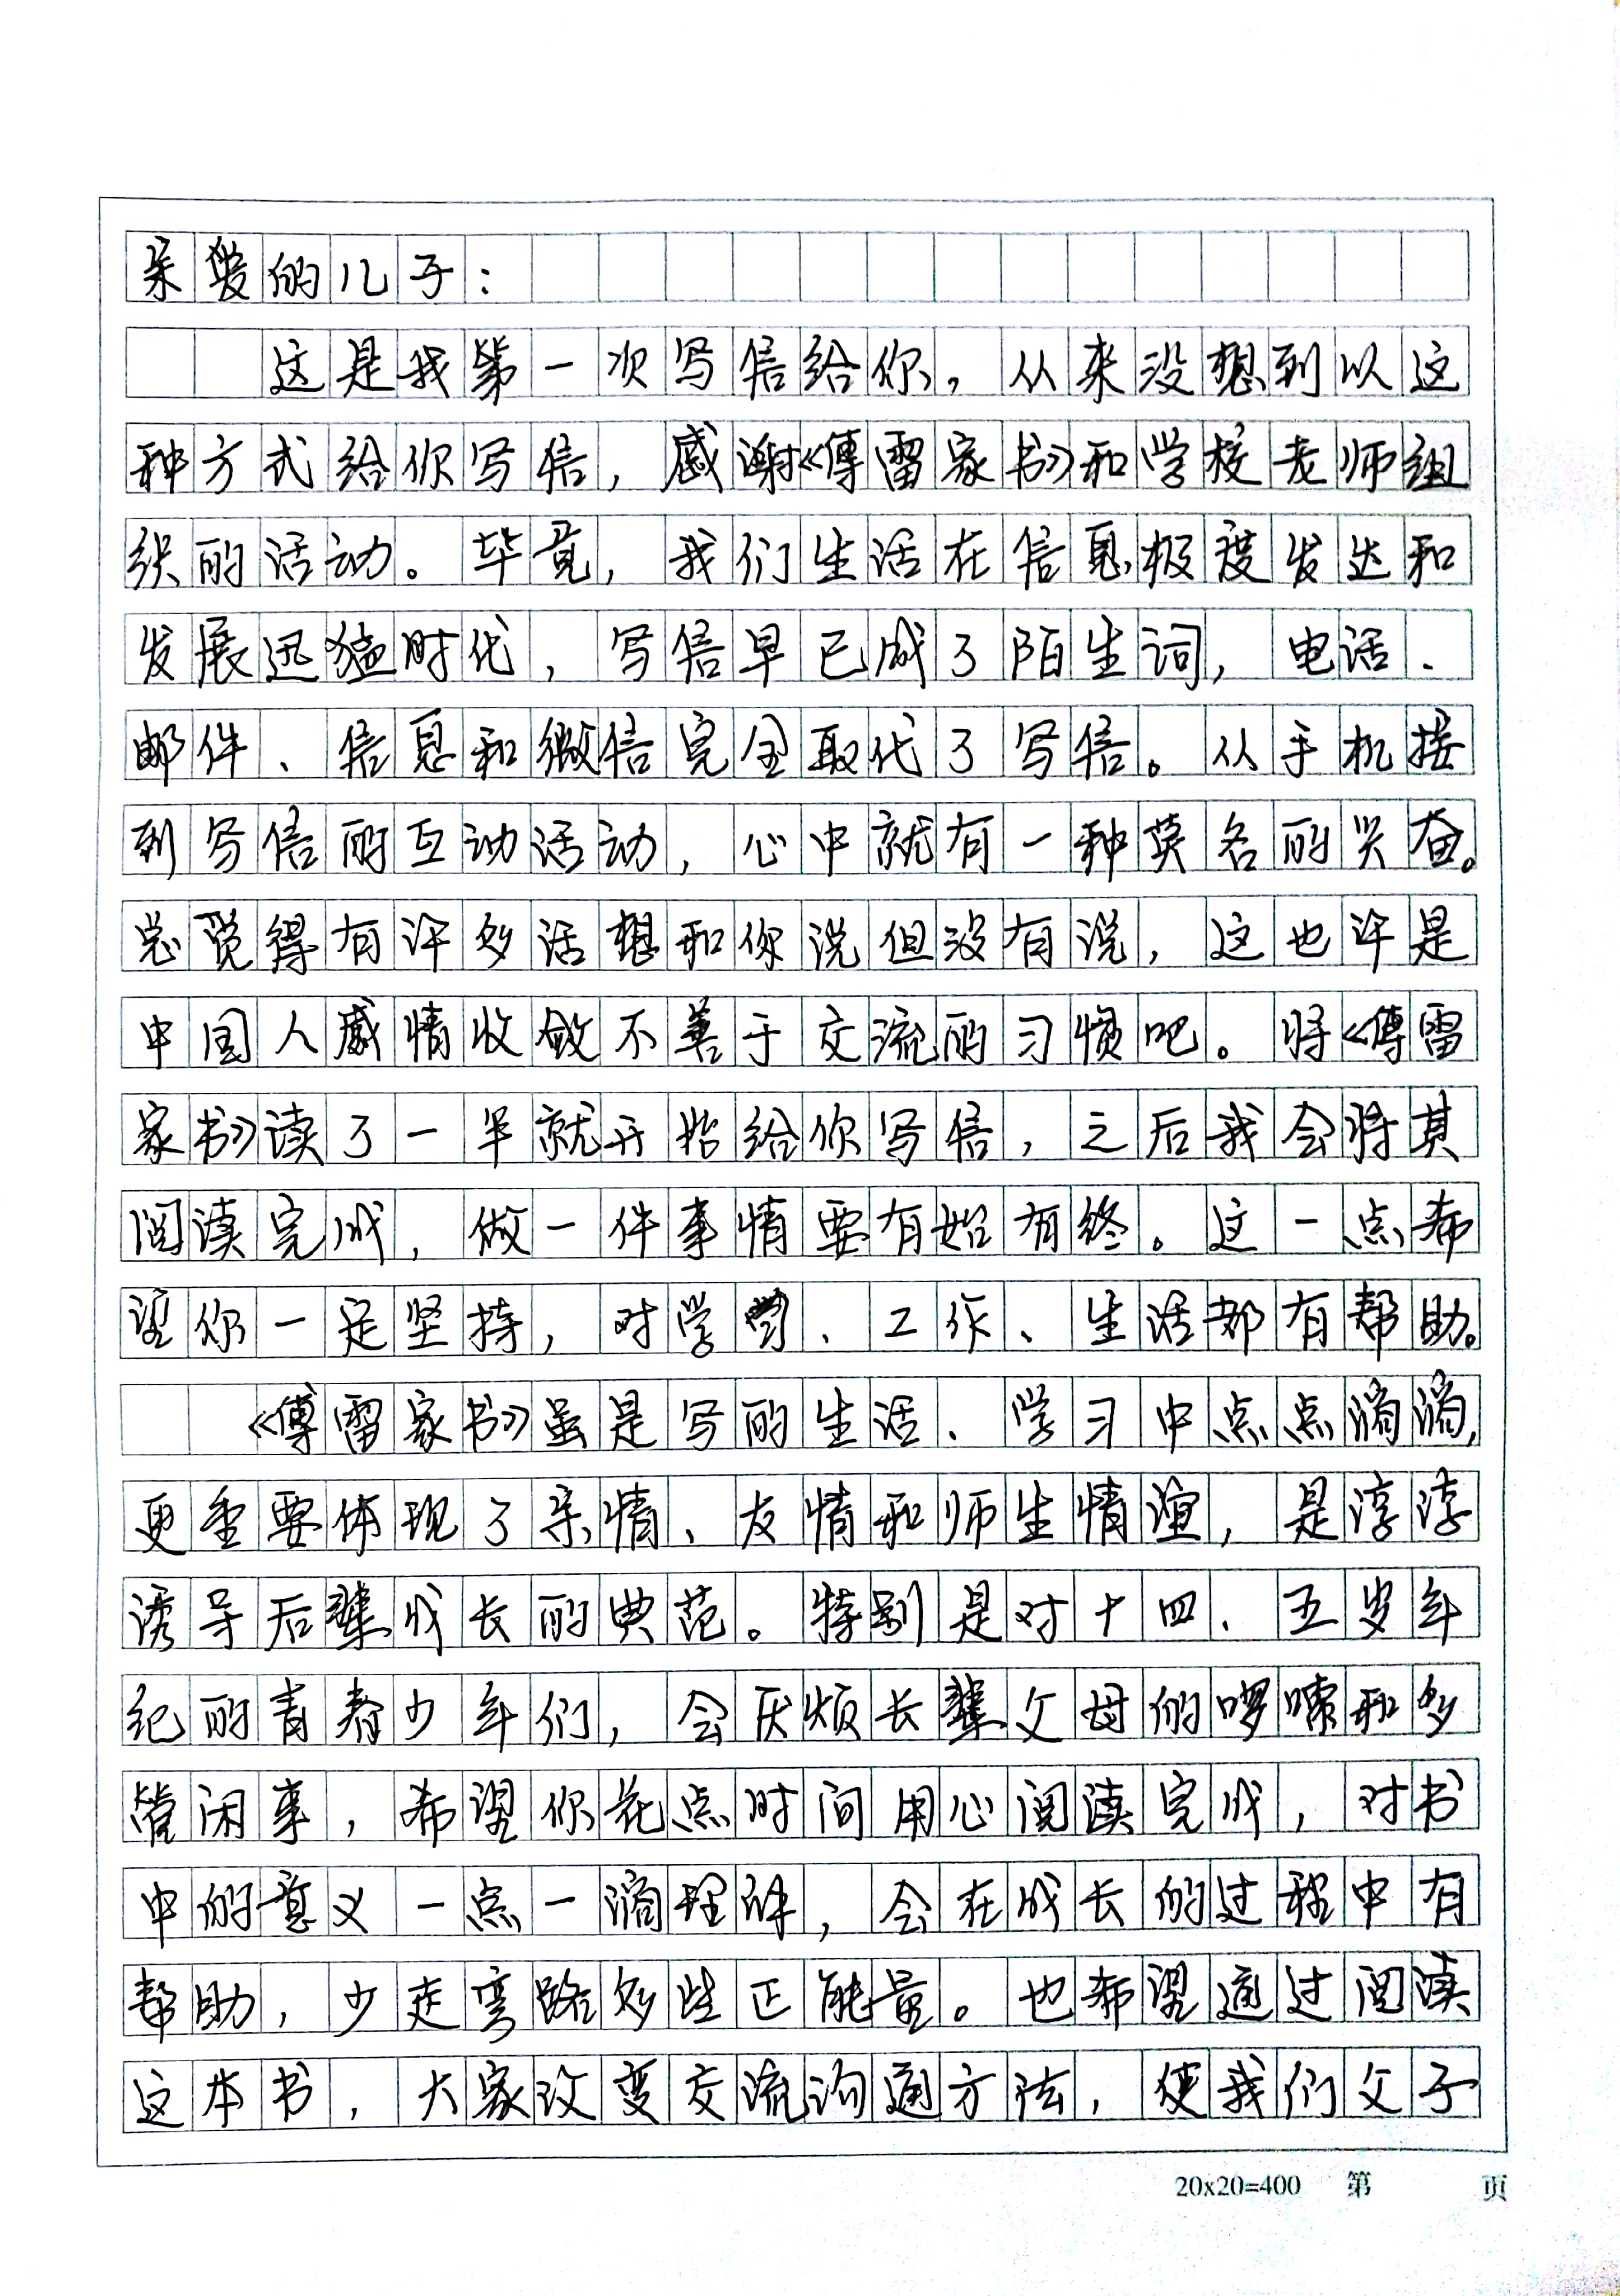 亲爱的儿子：
这是我第一次写信给你，从来没想到以这
种方式给你写信，感谢《傅雷家书》和学校老师组
织的活动。毕竟，我们生活在信息极度发达和
发展迅猛时代，写信早已成了陌生词，电话、
邮件、信息和微信完全取代了写信。从手机接
到写信的互动活动，心中就有一种莫名的兴奋。
总觉得有许多话想和你说但没有说，这也许是
中国人感情收敛不善于交流的习惯吧。将《傅雷
家书》读了一半就开始给你写信，之后我会将其
阅读完成，做一件事情要有始有终。这一点希
望你一定坚持，对学习、工作、生活都有帮助。
《傅雷家书》虽是写的生活、学习中点点滴滴，
更重要体现了亲情、友情和师生情谊，是谆谆
诱导后辈成长的典范。特别是对十四、五岁年
纪的青春少年们，会厌烦长辈父母的啰嗦和多
管闲事，希望你花点时间用心阅读完成，对书
中的意义一点一滴理解，会在成长的过程中有
帮助，少走弯路多些正能量。也希望通过阅读
这本书，大家改变交流沟通方法，使我们父子
20x20=400 第 页